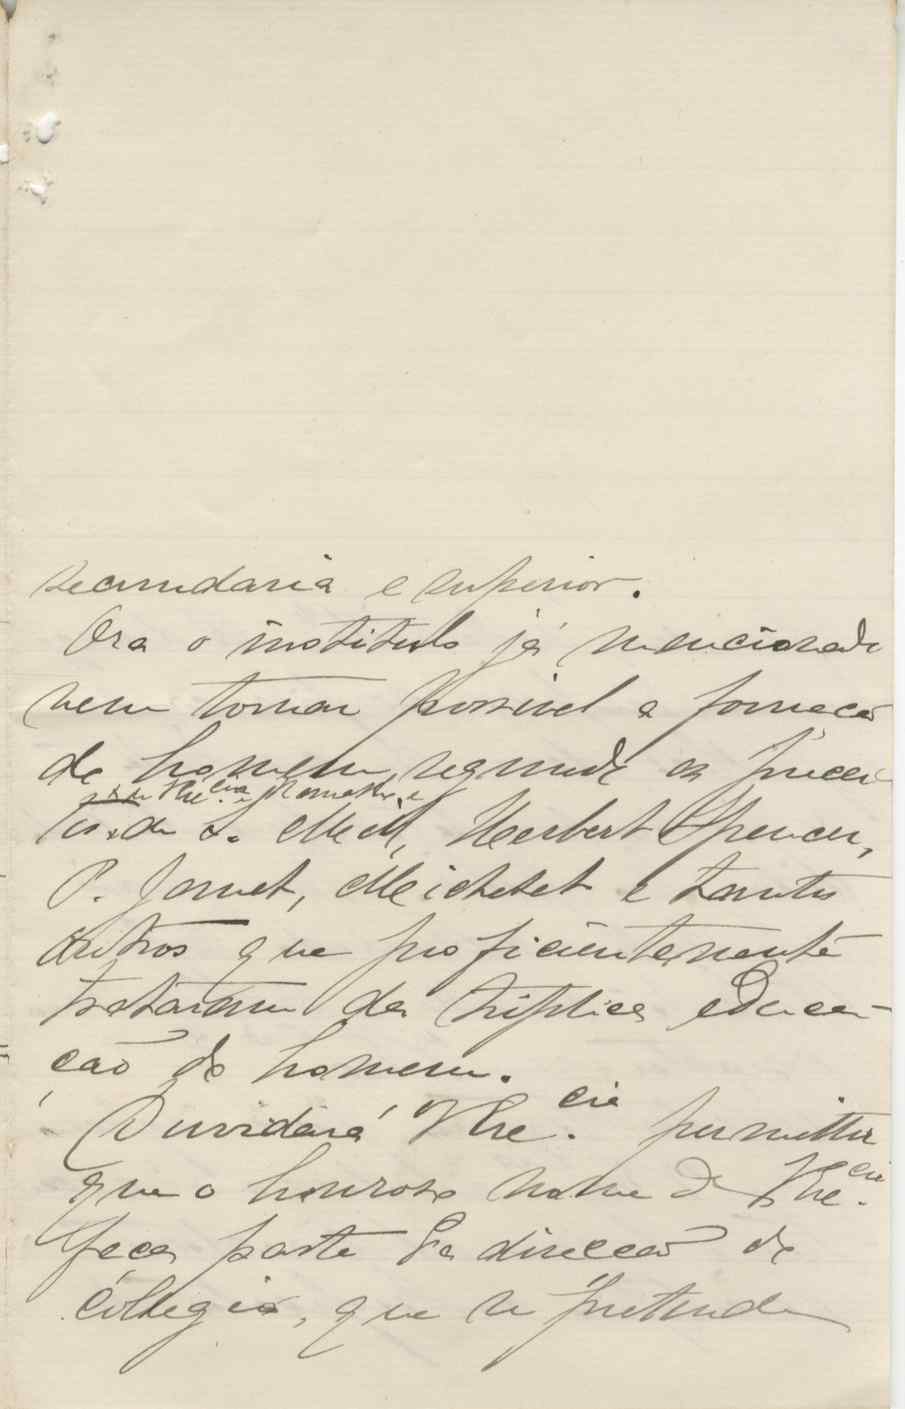 secundaria e superior.
Ora o instituto já mencionado
vem tornar possivel a formação
do homem, segundo os precei-
V. Exc.cia e Ramalho, e
tos de S. Mill, Herbert Spencer,
P. Janet, Michelet e tantos
outros que proficientemente
trataram da triplice educa-
ção do homem.
Duvidará V Exc.cia permittir
que o honroso nome de V Exc.cia
faça parte da direcção do
collegio, que se pretende